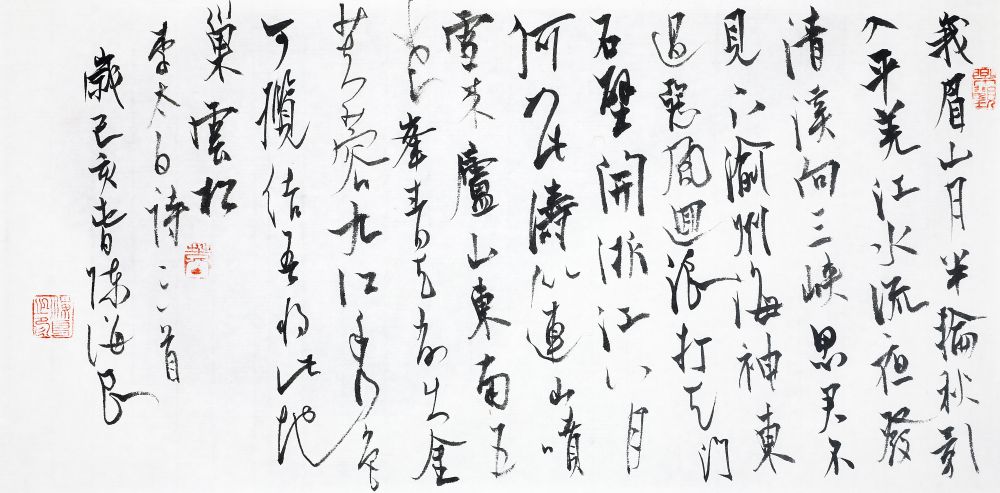 峩眉山月半輪秋影
入平羌江水流夜發
清溪向三峽思君不
見下渝州海神東
過惡風迴浪打天門
石壁開浙江八月
何如此濤似連山噴
雪來廬山東南五
老峯青天削出金
芙蓉九江秀色
可攬結吾將此地
巢雲松
李太白詩三首
歲己亥春陳海良